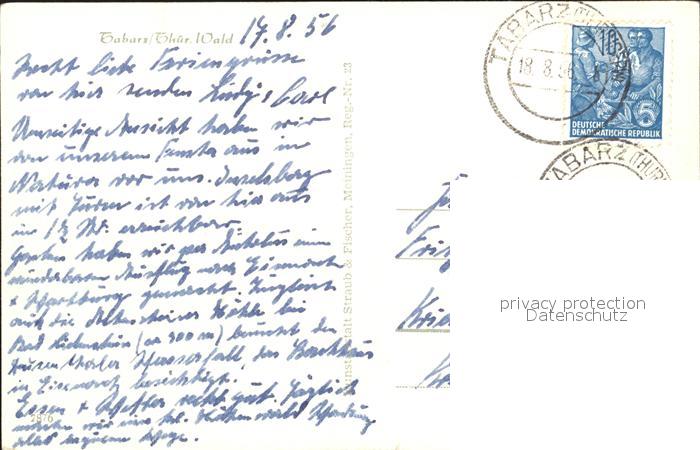 Tabarz/Thür. Wald
17.8.56
Recht liebe Feriengrüsse
von hier senden Lindy & Carl
Umseitige Ansicht haben wir
von unserem Fenster aus in
Natura vor uns. Inselsberg
mit Turm ist von hier aus
in 1½ St. erreichbar.
Gestern haben wir per Autobus einen
wunderbaren Ausflug nach Eisenach
& Wartburg gemacht. Zugleich
auch die Altensteiner Höhle bei
Bad Liebenstein (ca 300 m) besucht den
Trusenthaler Wasserfall, das Bachhaus
in Eisenach besichtigt.
Essen & Wetter recht gut. Täglich
machen wir eine kl.
2876
Kunstanstalt Straub & Fischer, Meiningen, Reg.-Nr. 23
TABARZ (THÜR
18.8.56
10
5
DEUTSCHE
DEMOKRATISCHE REPUBLIK
TABARZ (THÜR
privacy protection
Datenschutz